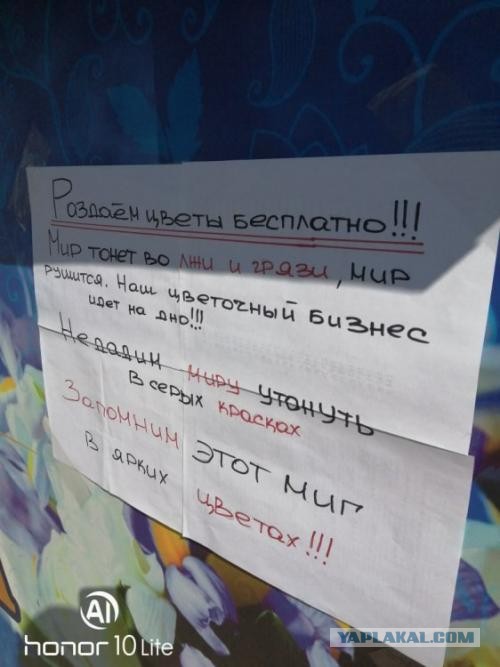 Роздаём цветы бесплатно!!!
Мир тонет во лжи и грязи, мир
рушится. Наш цветочный бизнес
идет на дно!!!
Недадим миру утонуть
в серых красках
Запомним этот миг
в ярких цветах!!!
AI
honor 10 Lite
YAPLAKAL.COM